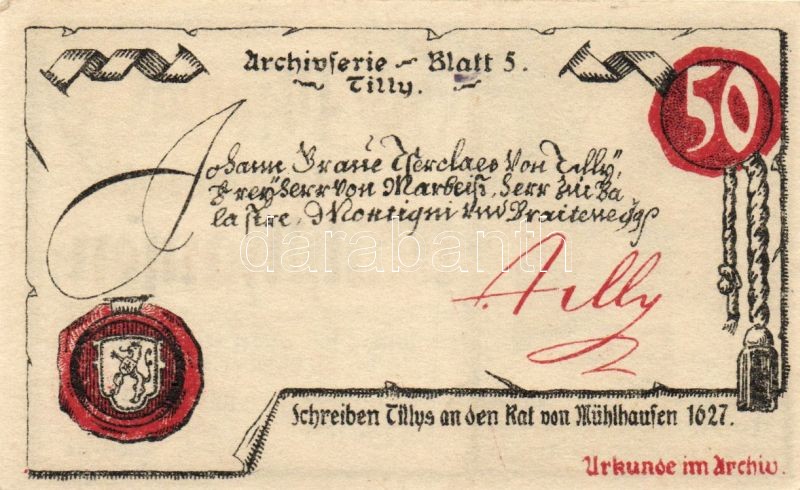 Archivserie - Blatt 5.
Tilly.
50
Johann Graue Tserclaes Von Tilly,
Freyherr von Marbeiß, Herr zu Ba
lastre, Montigni und Braitenegg
Tilly
darabanth
Schreiben Tillys an den Rat von Mühlhausen 1627.
Urkunde im Archiv.